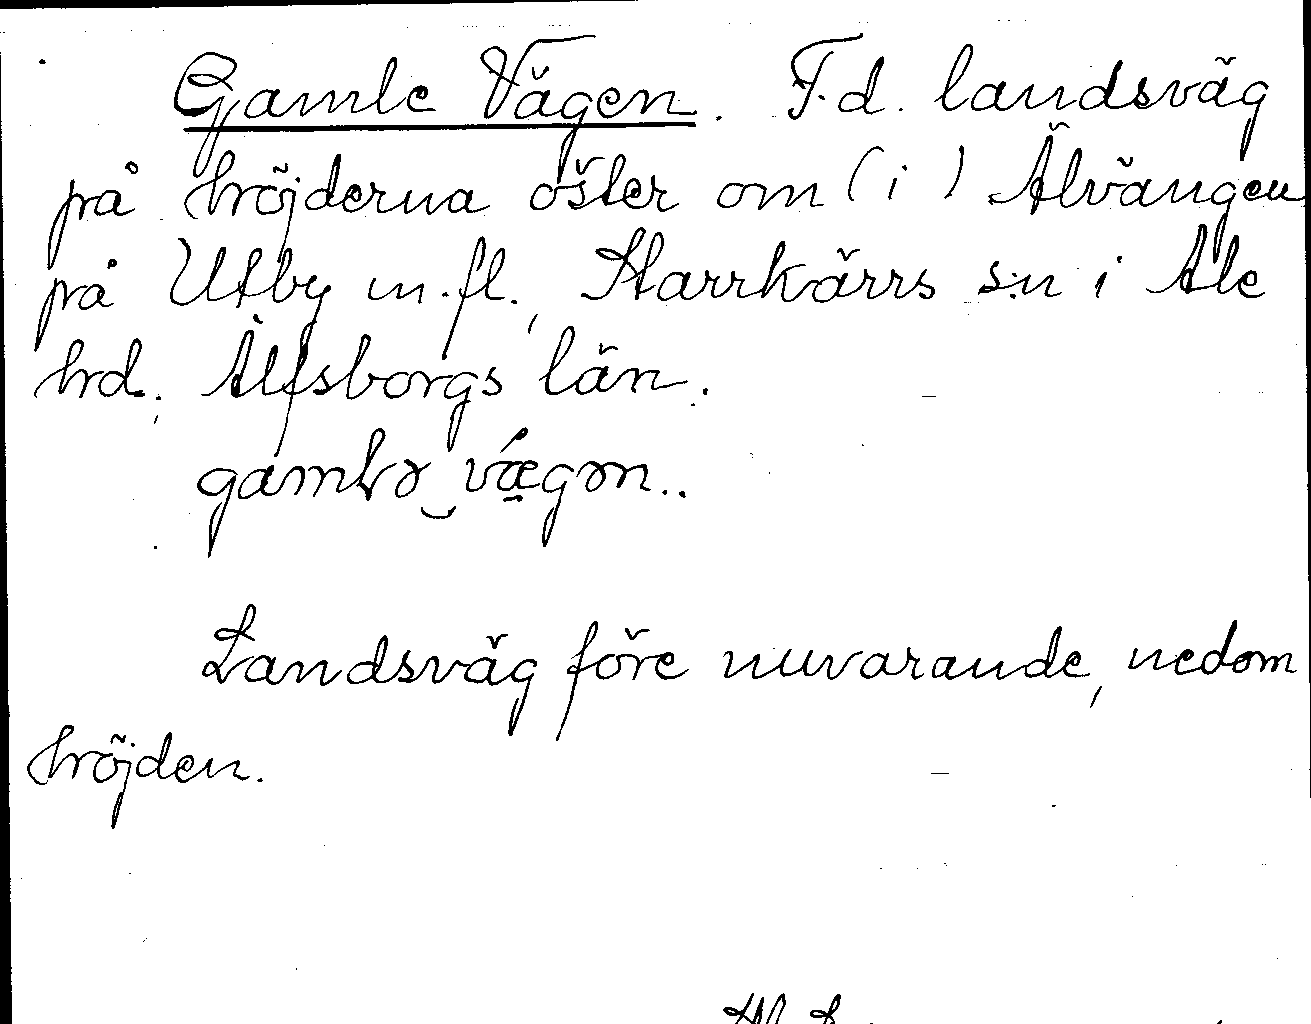 Gamle Vägen. F.d. landsväg
på höjderna öster om (i) Älvängen
på Utby m.fl., Starrkärrs s:n i Ale
hrd., Älfsborgs län.
gamlə‿vǽ̱gən..
Landsväg före nuvarande, nedom
höjden.